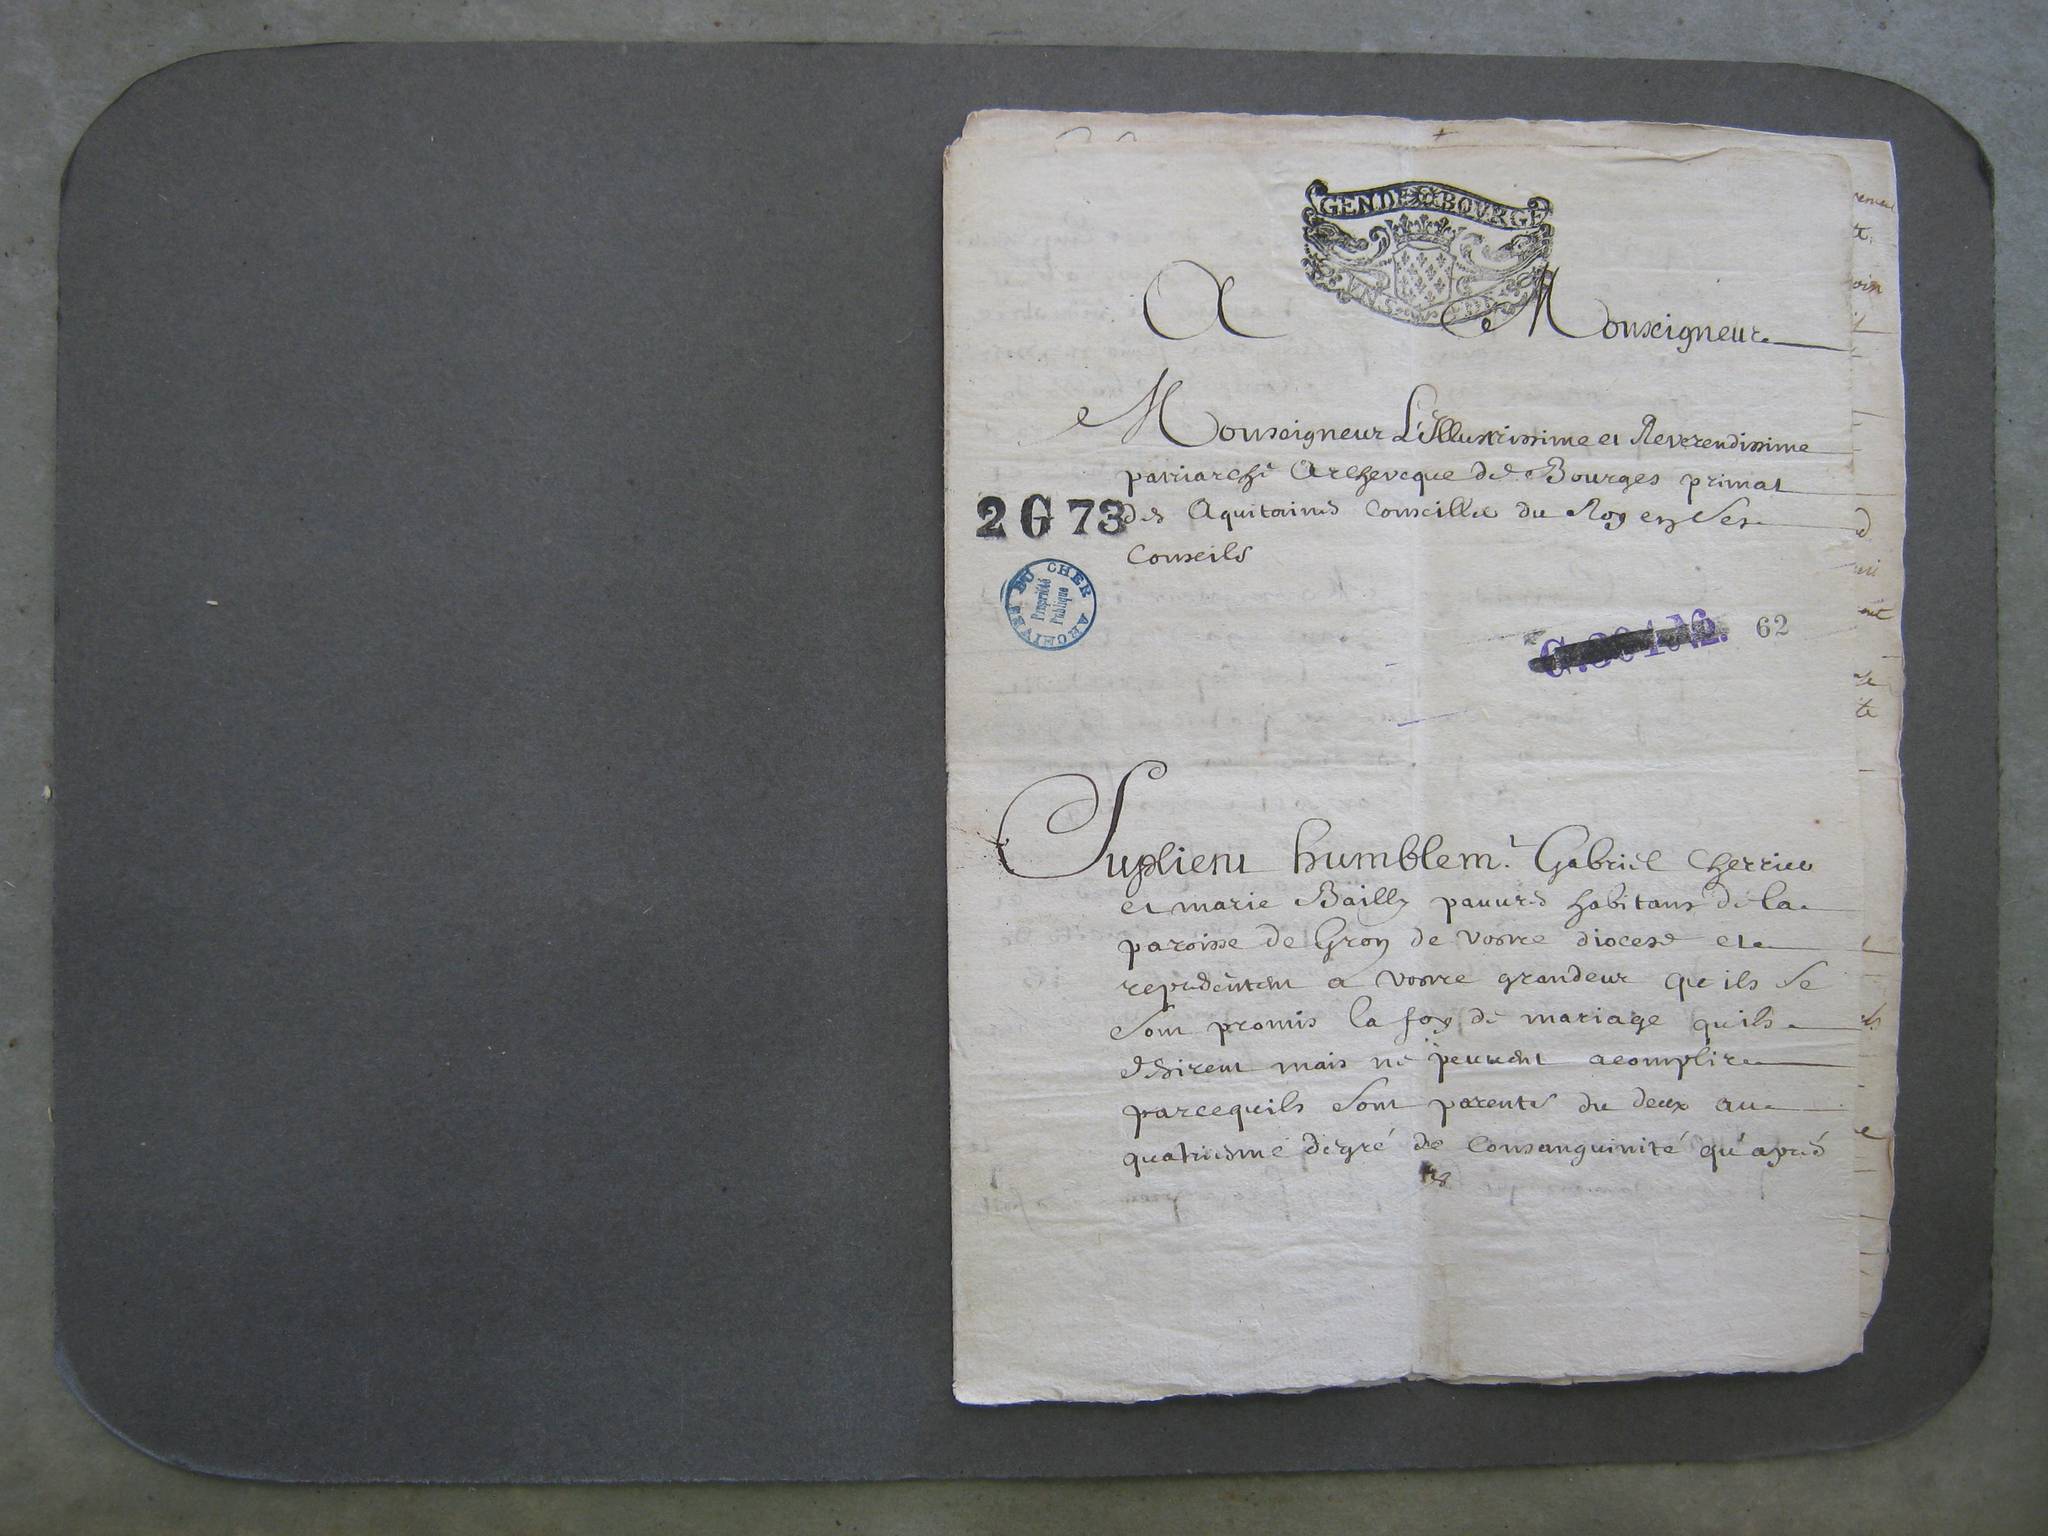 GEN DE BOVRGE
VN S
A Monseigneur
Monseigneur L'Illustrissime et Reverendissime
patriarche Archeveque de Bourges primat
2 G 73
des Aquitaines Conseiller du Roy en Ses
Conseils
ARCHIVES DU CHER
Propriété
Publique
62
Suplient humblemt. Gabriel Cherrier
et marie Bailly pauures habitans de la
paroisse de Gron de vostre diocese et
representent a vostre grandeur qu'ils se
sont promis la foy de mariage quils
desirent mais ne peuuent acomplir
parcequils sont parents du deux au
quatriesme degré de Consanguinité qu'aprés